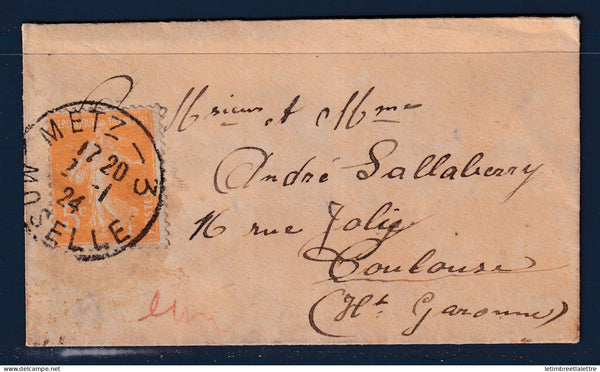 METZ - 3
17 20
-1
24
MOSELLE
Mrieur et Mme
André Sallaberry
16 rue Joly
Toulouse
(Hte Garonne)
www.delcampe.net
letimbreetlalettre